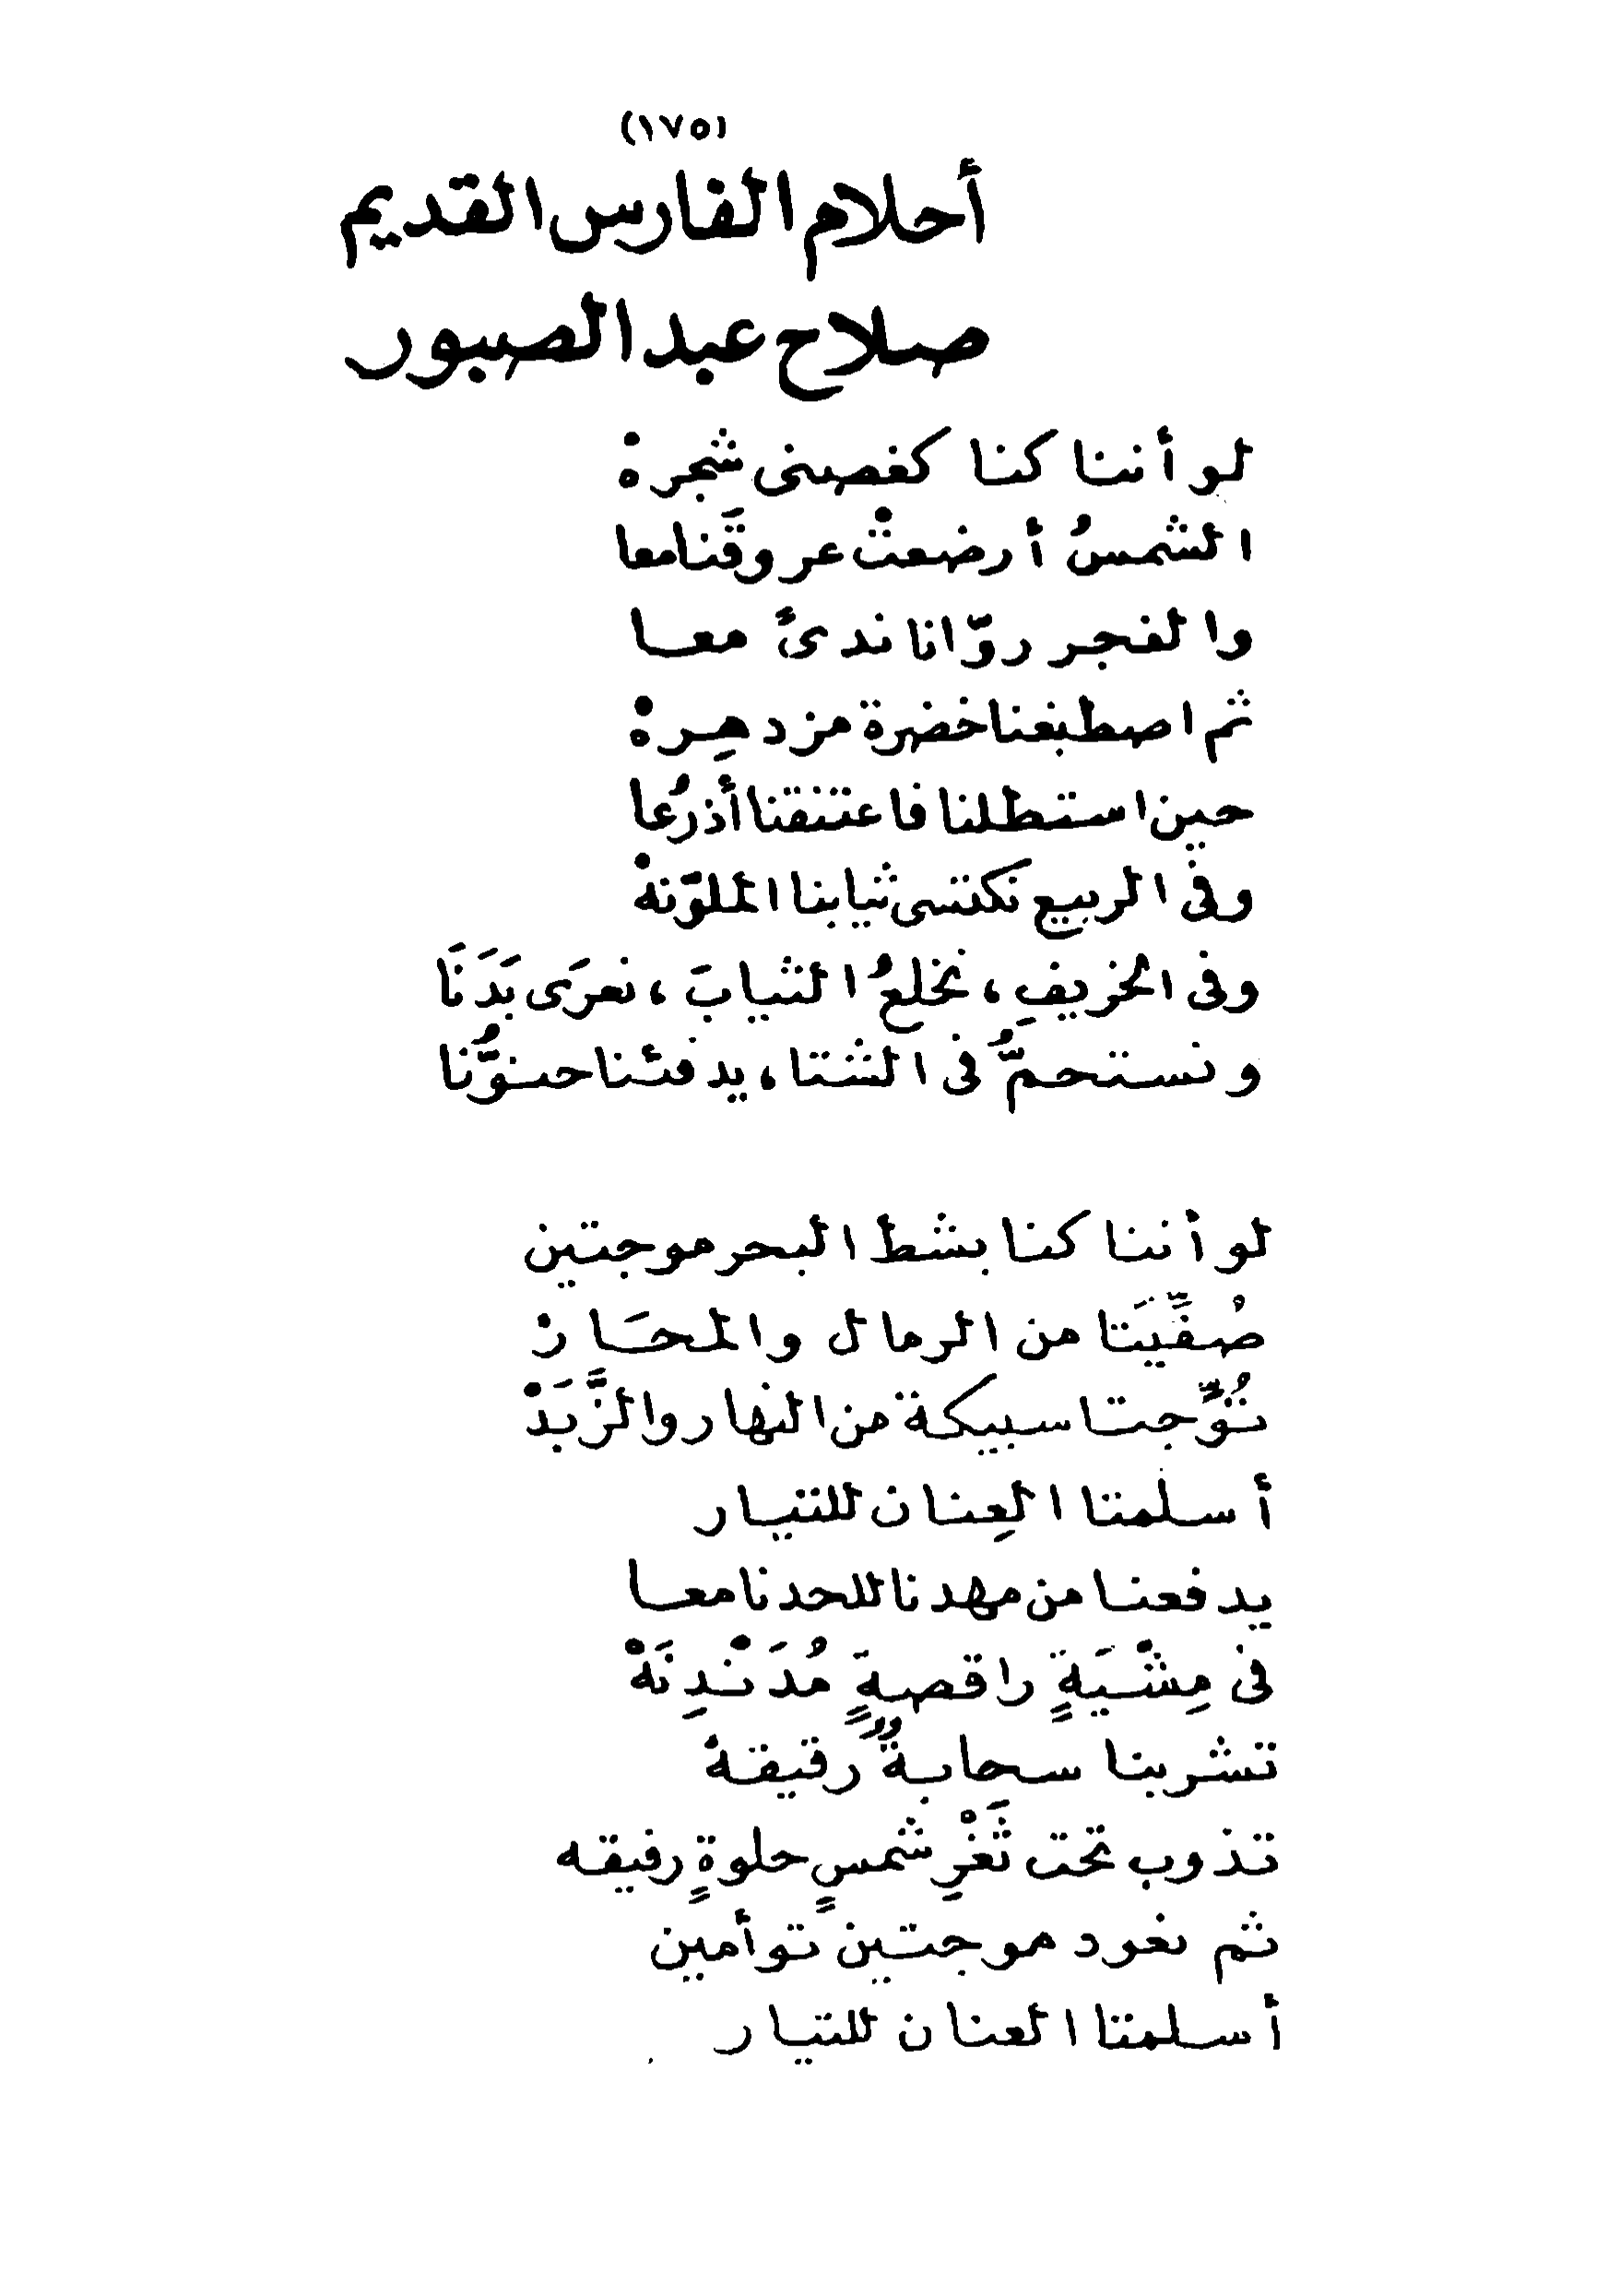 (١٧٥)
أحلام الفارس القديم
صلاح عبد الصبور
لو أننا كنا كغصنى شجرهْ
الشمسُ أرضعتْ عروقَنا معا
والفجر روّانا ندىً معا
ثم اصطبغنا خضرة مزدهِرهْ
حين استطلنا فاعتنقنا أذرُعا
وفى الربيع نكتسى ثيابنا الملوّنهْ
وفى الخريفِ، نخلعُ الثيابَ، نعرَى بَدَنَا
ونستحمُّ فى الشتا، يدفئنا حنوُّنا
لو أننا كنا بشط البحر موجتين
صُفِّيَتا من الرمال والمحَارْ
تُوِّجتا سبيكة من النهار والزَّبَدْ
أسلمتا العِنان للتيار
يدفعنا من مهدنا للحدنا معا
فى مِشْيَةٍ راقصةٍ مُدَنْدِنَهْ
تشربنا سحابةٌ رقيقهْ
تذوب تحت ثَغْرِ شمسٍ حلوةٍ رفيقه
ثم نعود موجتين توأمين
أسلمتا العنان للتيار